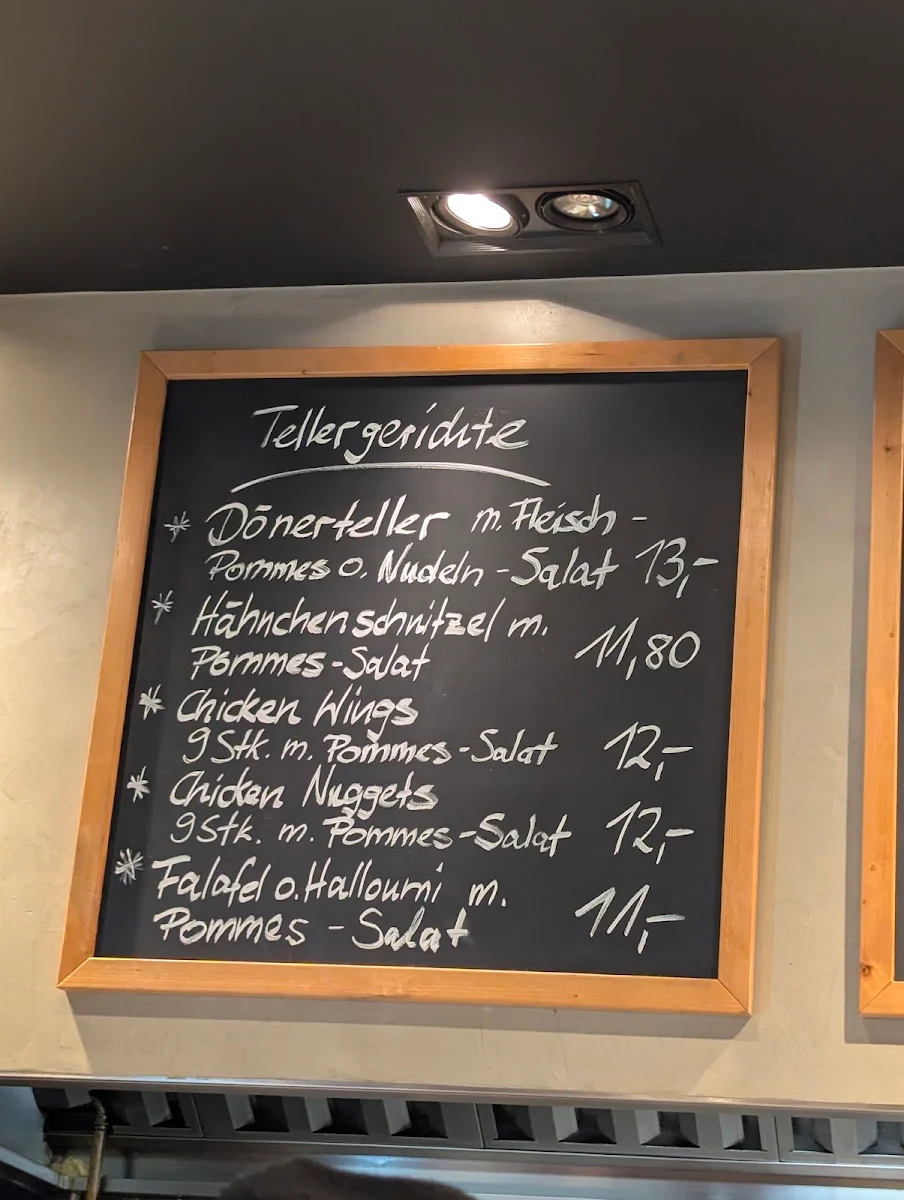 Tellergerichte
* Dönerteller m. Fleisch -
Pommes o. Nudeln - Salat 13,-
* Hähnchenschnitzel m.
Pommes - Salat 11,80
* Chicken Wings
9 Stk. m. Pommes - Salat 12,-
* Chicken Nuggets
9 Stk. m. Pommes - Salat 12,-
* Falafel o. Halloumi m.
Pommes - Salat 11,-